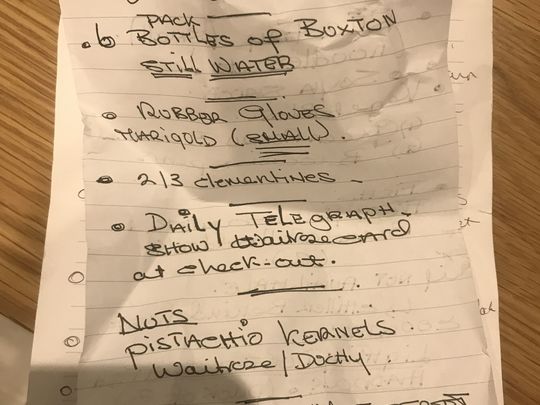 PACK
• 6 BOTTLES of BUXTON
STILL WATER
• RUBBER Gloves
MARIGOLD (SMALL).
• 2/3 clementines -
• DAILY TELEGRAPH -
SHOW Waitrose card
at check-out.
NUTS
PISTACHIO KERNELS.
Waitrose /